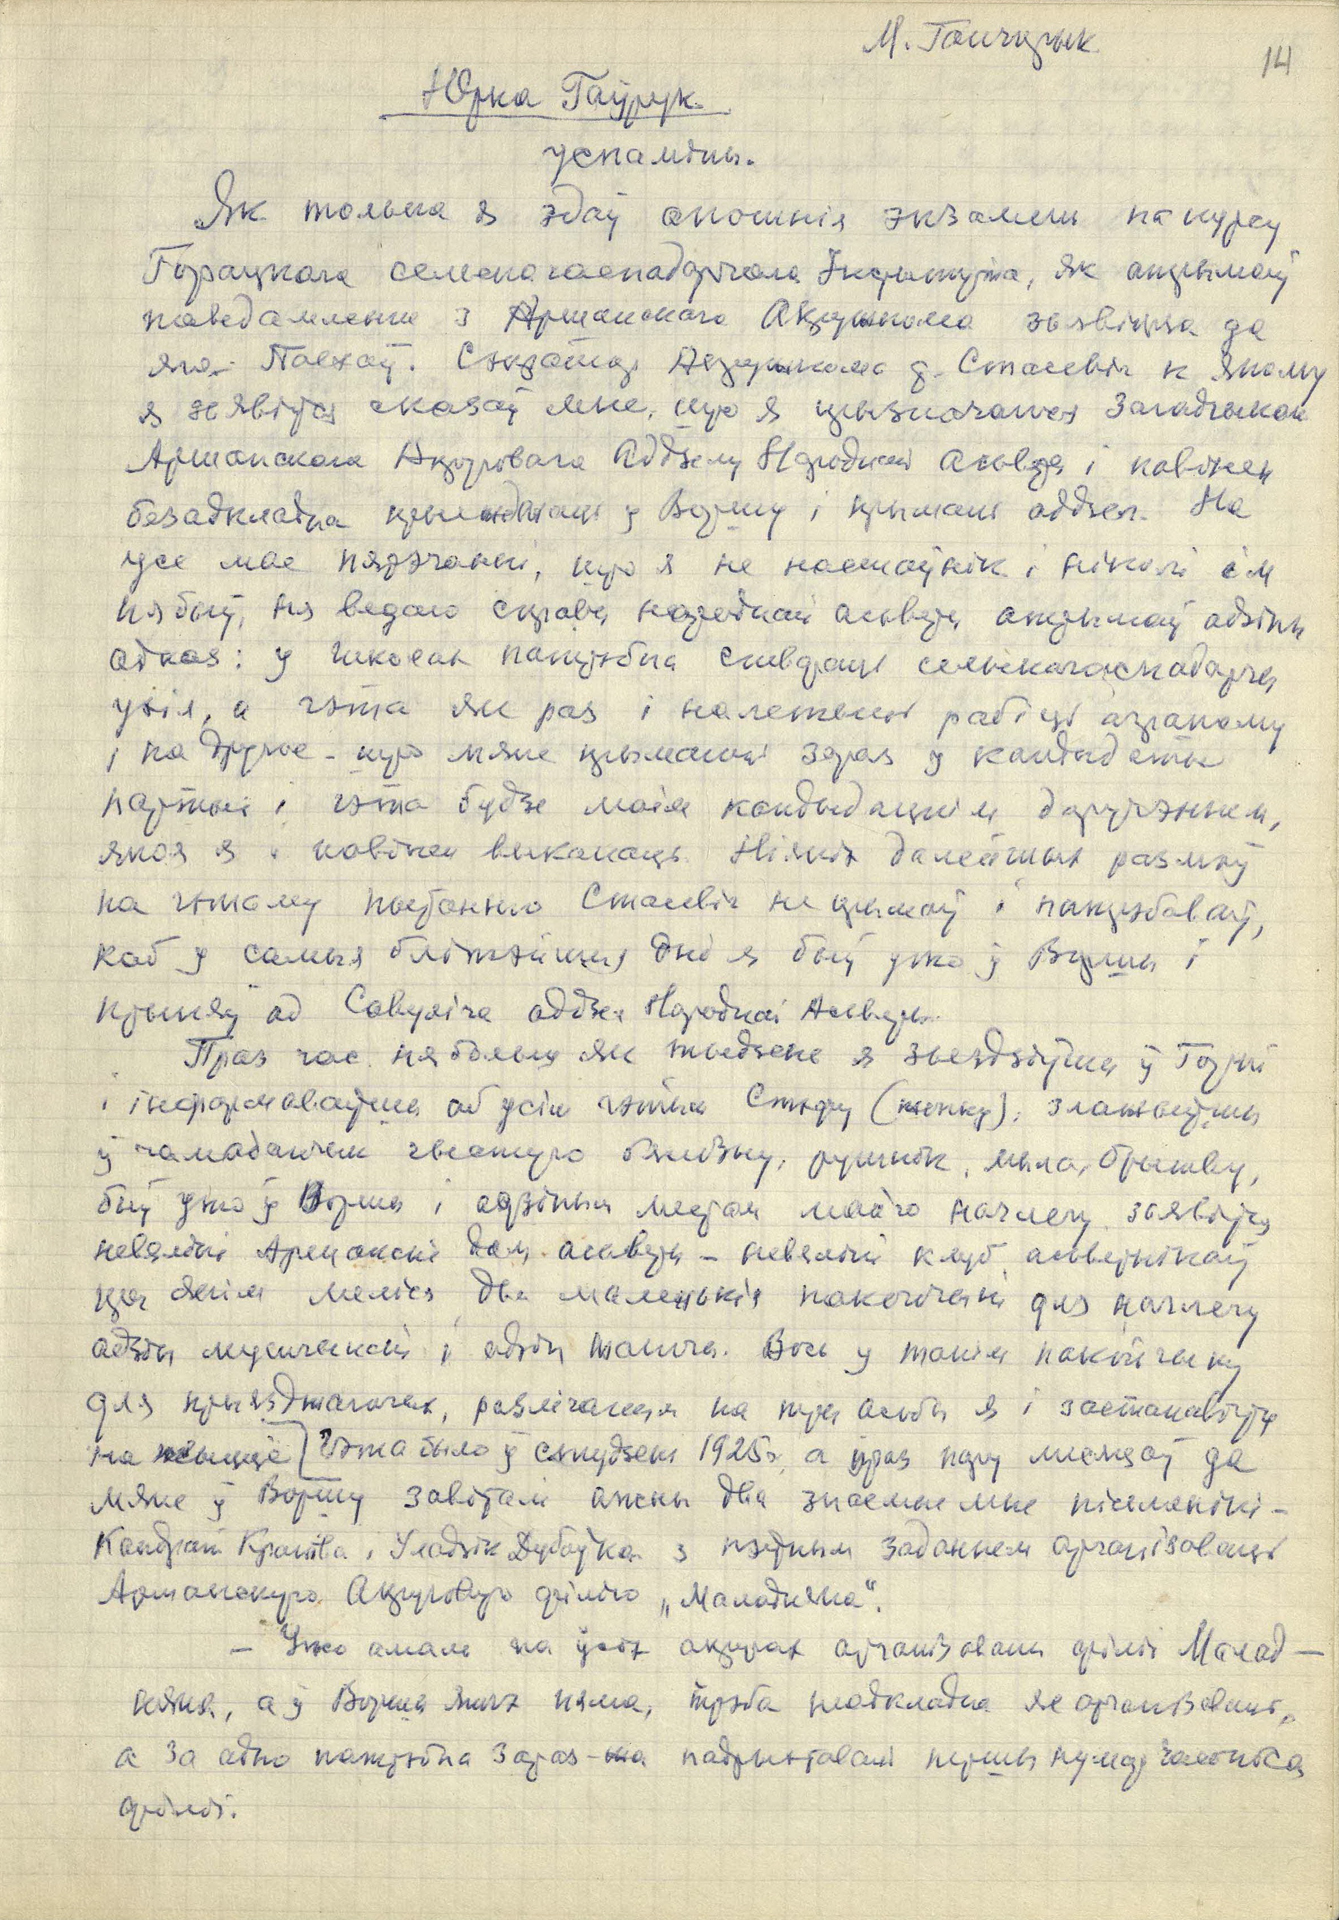 М. Ганчарык
14
Юрка Гаўрук.
успаміны.
Як толькі я здаў апошнія экзамены па курсу
Горацкага селскагаспадарчага Інстытута, як атрымаў
паведамленне з Аршанскага Акрукома зьявіцца да
яго. Паехаў. Сакратар Акрукома д. Стасевіч к якому
я зьявіўся сказаў мне, што я прызначаюся Загадчыкам
Аршанскага Акруговага Аддзелу Народнай Асьветы і павінен
безадкладна прыехаць у Воршу і прымаць аддзел. На
усе мае пярэчанні, што я не настаўнік і ніколі ім
ня быў, ня ведаю справы народнай асьветы атрымаў адзіны
адказ: у школах патрэбна ствараць сельскагаспадарчы
ухіл, а гэта як раз і належыць рабіць аграному
і па другое - што мяне прымаюць зараз у кандыдаты
партыі і гэта будзе маім кандыдацкім даручэннем,
якое я і павінен выканаць. Ніякіх далейшых размоў
па гэтаму пытанню Стасевіч не прымаў і патрабаваў,
каб у самыя бліжэйшыя дні я быў ужо ў Воршы і
прыняў ад Савуліча аддзел Народнай Асьветы.
Праз час ня больш як тыдзень я зьездзіўшы ў Горкі
і інфармаваўшы аб усім гэтым Стэфу (жонку), злажыўшы
ў чамаданчык чыстую бялізну, ручнік, мыла, брытву,
быў ужо ў Воршы і адзіным местам майго начлегу зьявіўся
невялікі Аршанскі дом асьветы - невялікі клуб асьветнікаў
пры якім меліся два маленькія пакойчыкі для начлегу
адзін мужчынскі і адзін жаночы. Вось у такім пакойчыку
для прыязджаючых, разлічаным на тры асобы я і застанавіўся
на жыццё] Гэта было ў студзені 1925 г. а праз пару месяцаў да
мяне ў Воршу завіталі ажны два знаемыя мне пісьменнікі -
Кандрат Крапіва і Уладзік Дубоўка з пэўным заданнем арганізаваць
Аршанскую Акруговую філію „Маладняка".
- Ужо амаль па ўсіх акругах арганізаваны філіі Малад-
няка, а ў Воршы яшчэ няма, трэба неадкладна яе арганізаваць,
а за адно патрэбна зараз-жа падрыхтаваць першы нумар часопіса
філіі.